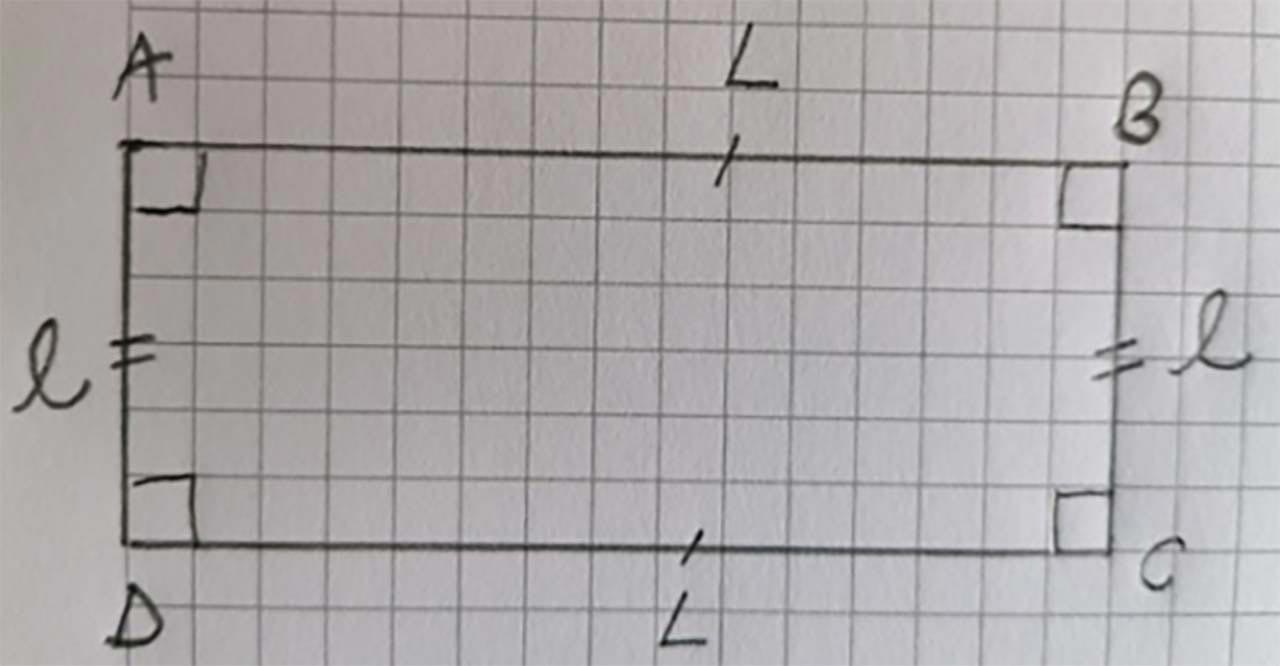 A L B
l l
D L C